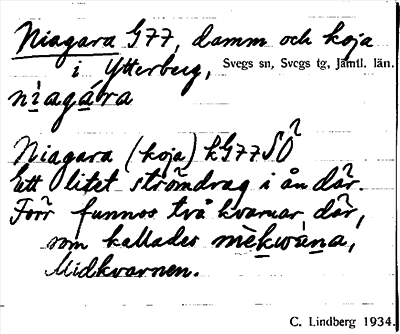 Niagara G77, damm och koja
i Ytterberg, Svegs sn, Svegs tg, Jämtl. län.
niagára
Niagara (koja) kG77SÖ
Ett litet strömdrag i ån där.
Förr funnos två kvarnar där,
som kallades mèkwàna,
Midkvarnen.
C. Lindberg 1934.